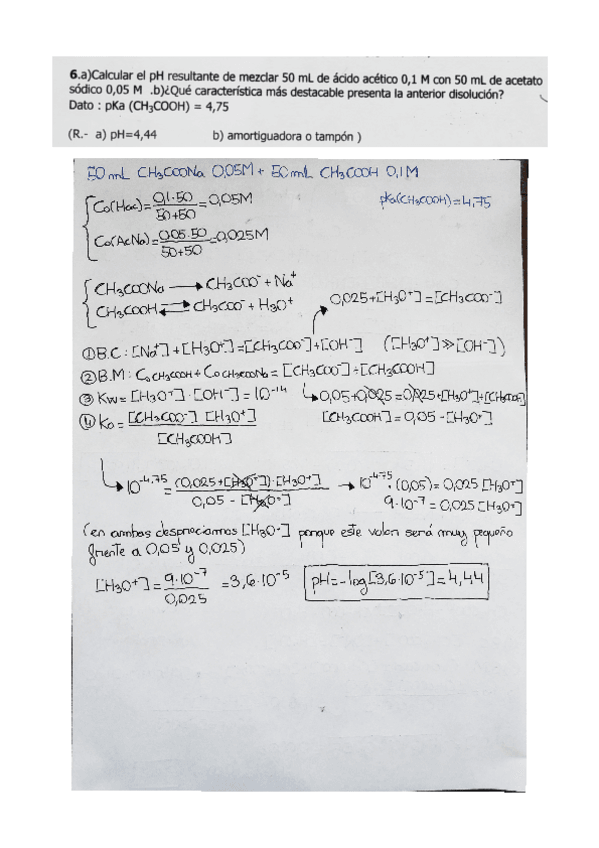 6.a)Calcular el pH resultante de mezclar 50 mL de ácido acético 0,1 M con 50 mL de acetato
sódico 0,05 M .b)¿Qué característica más destacable presenta la anterior disolución?
Dato : pKa (CH₃COOH) = 4,75
(R.- a) pH=4,44 b) amortiguadora o tampón )
50 mL CH₃COONa 0,05M + 50 mL CH₃COOH 0,1M
Co(Hac)= 0,1·50 / 50+50 = 0,05M pKa(CH₃COOH)=4,75
Co(AcNa)= 0,05·50 / 50+50 = 0,025M
CH₃COONa → CH₃COO⁻ + Na⁺
CH₃COOH ⇄ CH₃COO⁻ + H₃O⁺ 0,025+[H₃O⁺]=[CH₃COO⁻]
① B.C: [Na⁺]+[H₃O⁺]=[CH₃COO⁻]+[OH⁻] ([H₃O⁺]≫[OH⁻])
② B.M: Co CH₃COOH + Co CH₃COONa = [CH₃COO⁻]+[CH₃COOH]
③ Kw=[H₃O⁺]·[OH⁻]=10⁻¹⁴ 0,05+0,025=0,025+[H₃O⁺]+[CH₃COOH]
④ Ka= [CH₃COO⁻][H₃O⁺] / [CH₃COOH] [CH₃COOH]=0,05-[H₃O⁺]
10⁻⁴·⁷⁵= (0,025+[H₃O⁺])·[H₃O⁺] / 0,05-[H₃O⁺] → 10⁻⁴·⁷⁵·(0,05)=0,025[H₃O⁺]
9·10⁻⁷=0,025[H₃O⁺]
(en ambas despreciamos [H₃O⁺] porque este valor será muy pequeño
frente a 0,05 y 0,025)
[H₃O⁺]= 9·10⁻⁷ / 0,025 =3,6·10⁻⁵ pH=-log[3,6·10⁻⁵]=4,44